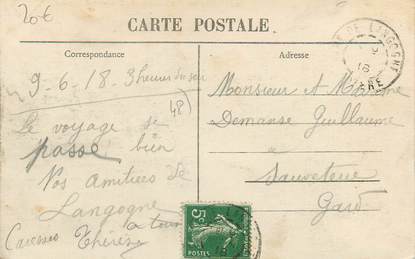 20€
CARTE POSTALE
Correspondance
Adresse
DE LANGOGNE
18
9-6-18. 3 heures du soir
48)
Le voyage se
passe bien
Nos Amitiées de
Langogne
à tous
Caresses Thérèse
Monsieur et Madame
Demanse Guillaume
à
Sauveterre
Gard
5c